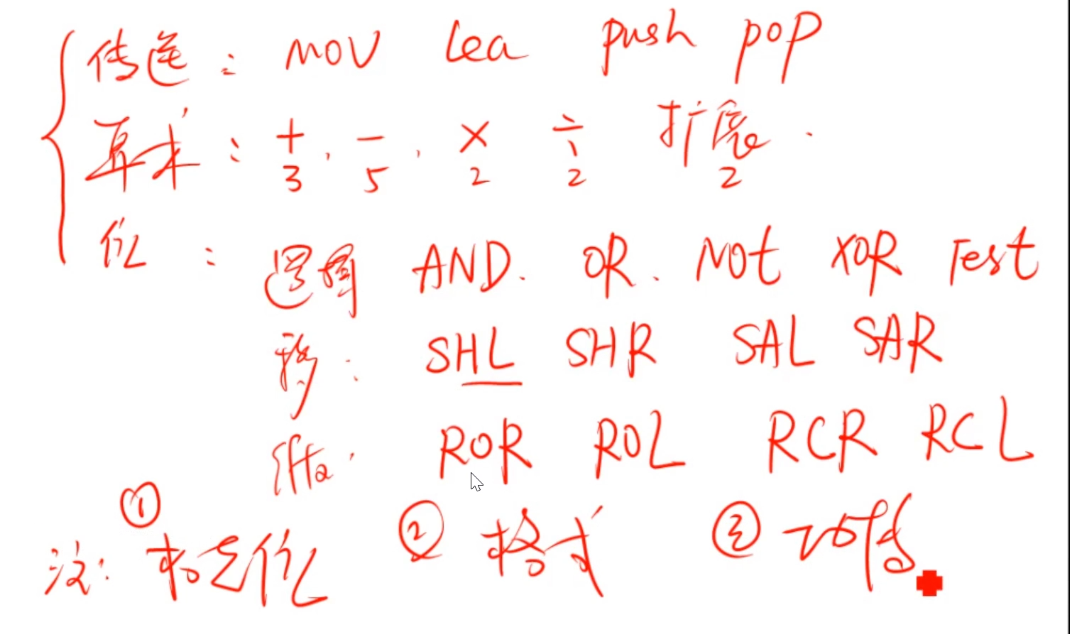 传送: MOV lea push pop
算术: + . - . × ÷ 扩展.
3 5 2 2 2
位: 逻辑 AND. OR. Not XOR Test
移: SHL SHR SAL SAR
ROR ROL RCR RCL
注: ① 标志位 ② 格式 ③ 功能